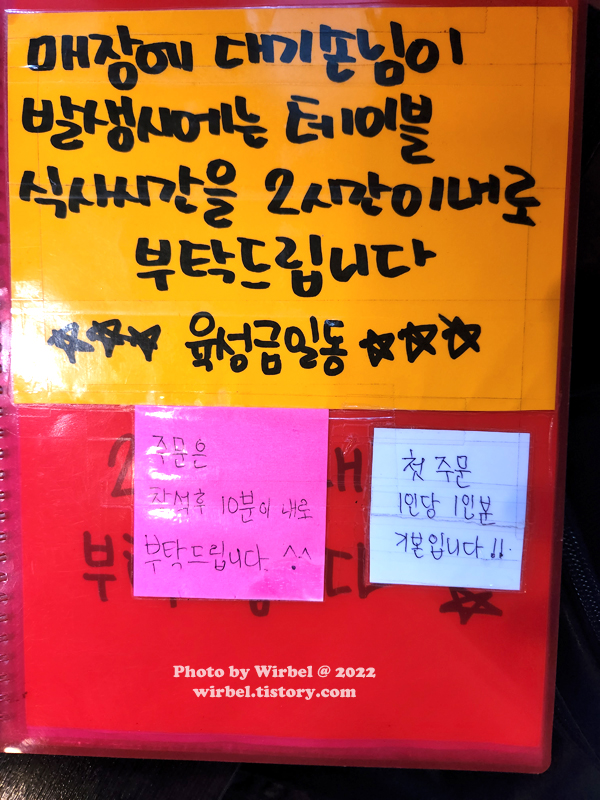 매장에 대기손님이
발생시에는 테이블
식사시간을 2시간이내로
부탁드립니다
☆☆☆ 육성급일동 ☆☆☆
주문은
착석후 10분이내로
부탁드립니다 ^.^
첫 주문
1인당 1인분
기본입니다!!
Photo by Wirbel @ 2022
wirbel.tistory.com